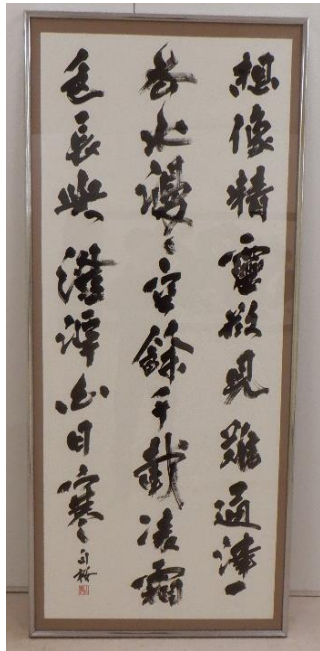 想像精靈欲見難通津一
去水漫々空餘千載凌霜
色長與澄潭白日寒